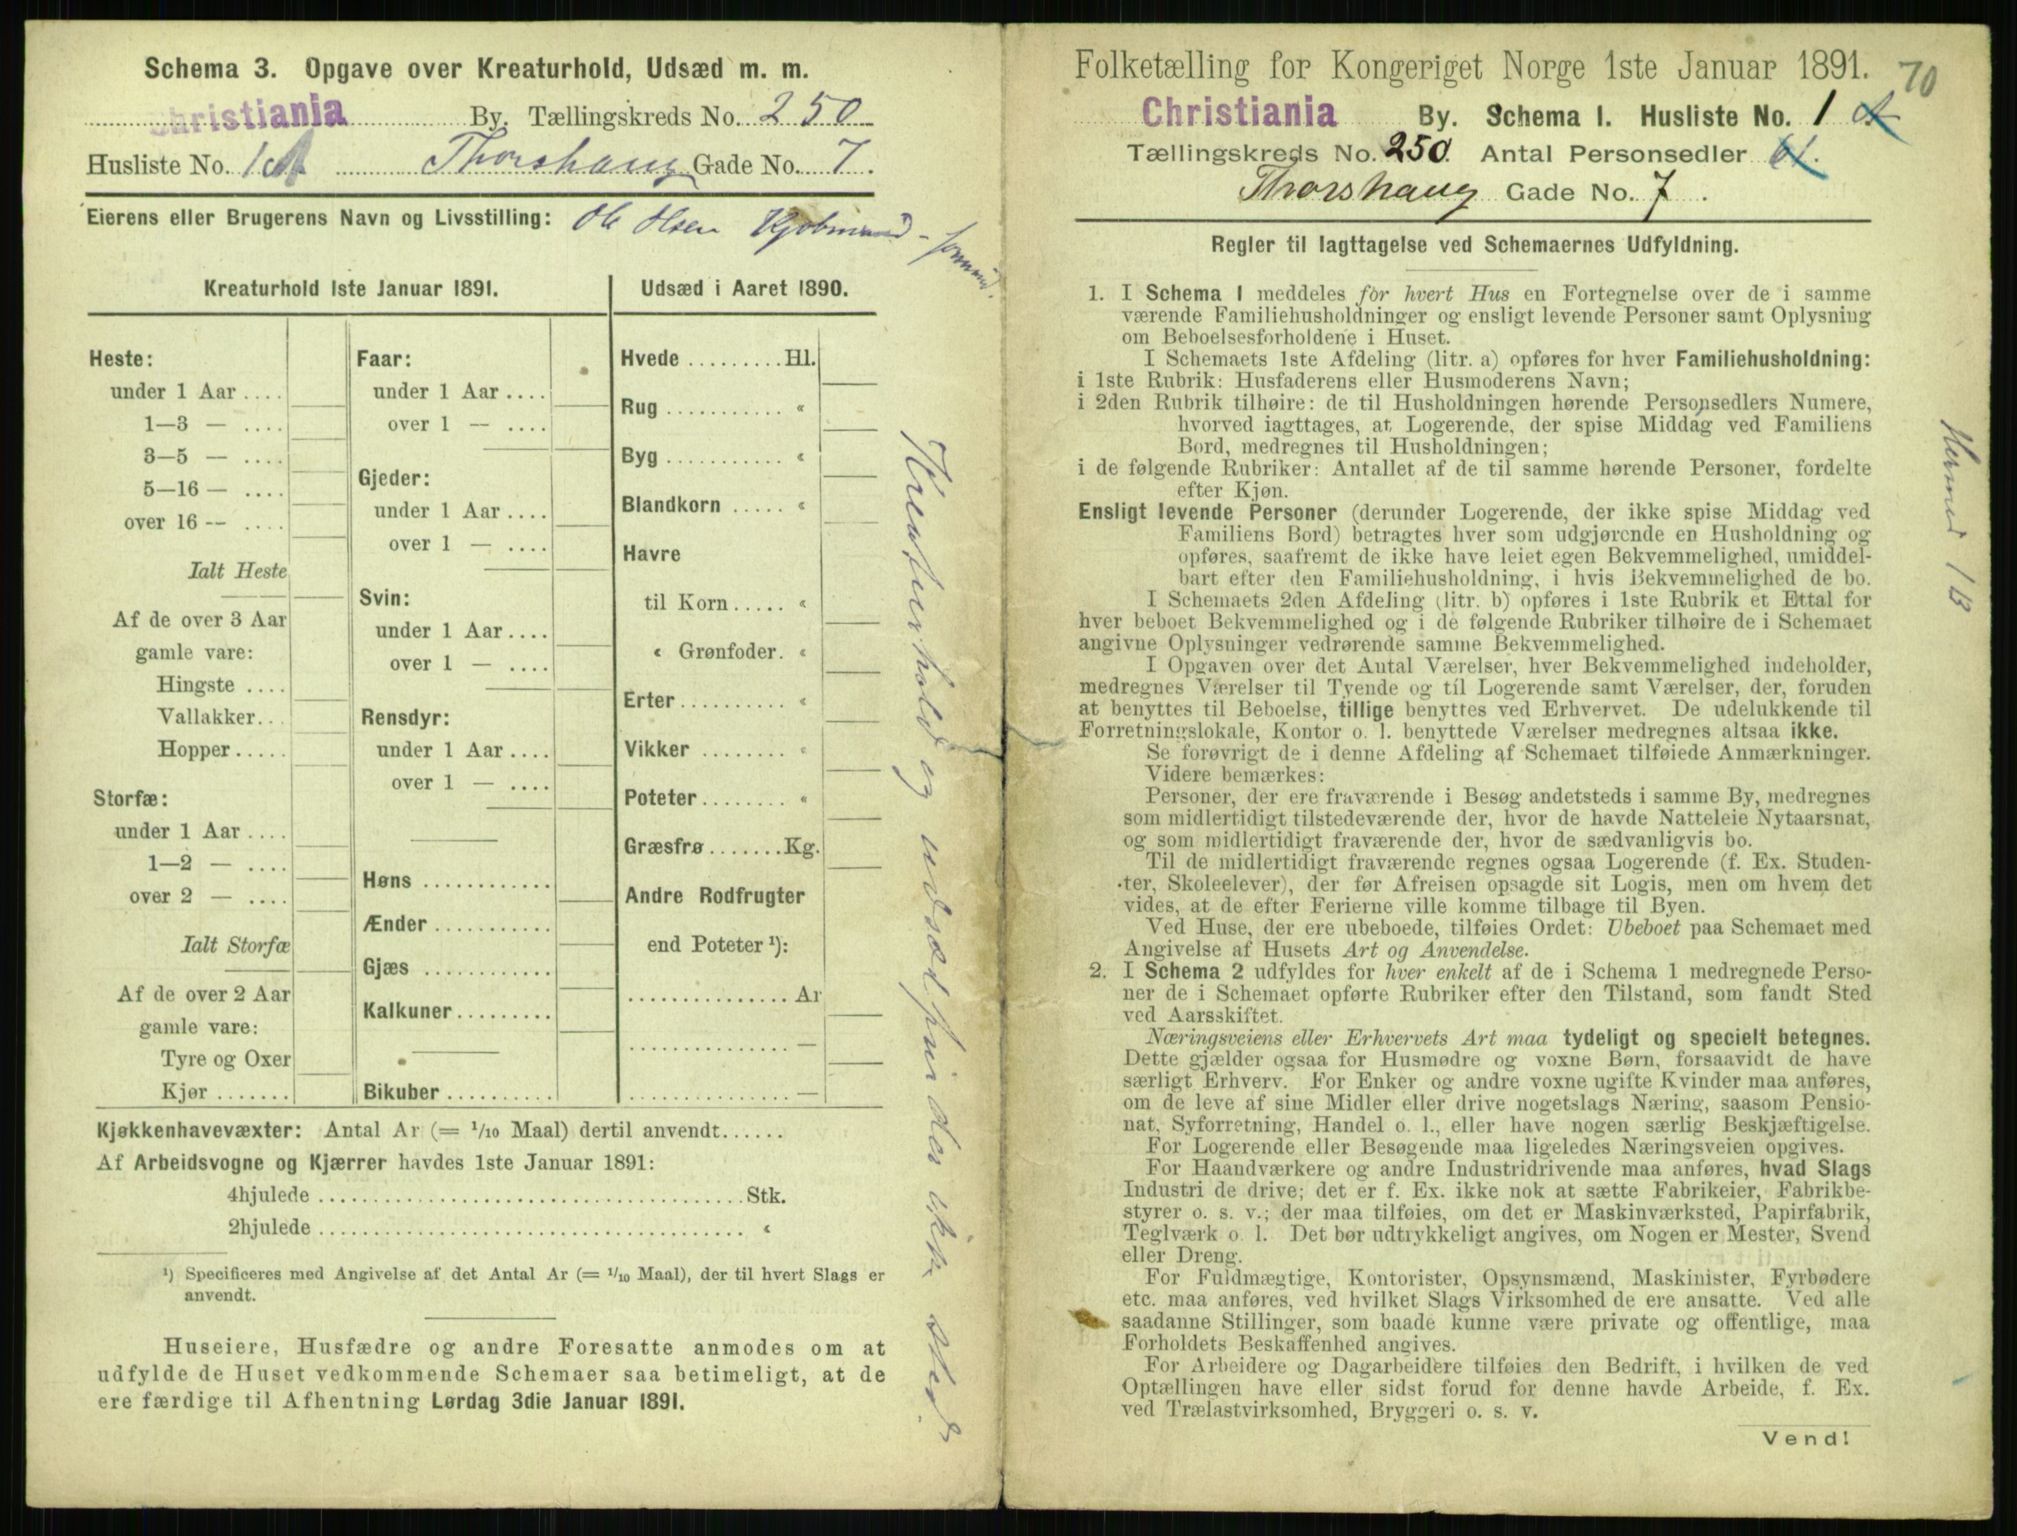 Schema 3. Opgave over Kreaturhold, Udsæd m. m.
Christiania By. Tællingskreds No. 250
Husliste No. 1 A Thorshaug Gade No. 7.
Eierens eller Brugerens Navn og Livsstilling: Ole Olsen Kjøbmand -
Kreaturhold 1ste Januar 1891.
Heste:
under 1 Aar ....
1—3 — ....
3—5 — ....
5—16 — ....
over 16 -- ....
Ialt Heste
Af de over 3 Aar
gamle vare:
Hingste ....
Vallakker...
Hopper.....
Storfæ:
under 1 Aar ....
1—2 — ....
over 2 — ....
Ialt Storfæ
Af de over 2 Aar
gamle vare:
Tyre og Oxer
Kjør .......
Faar:
under 1 Aar ....
over 1 — ....
Gjeder:
under 1 Aar ....
over 1 — ....
Svin:
under 1 Aar ....
over 1 — ....
Rensdyr:
under 1 Aar ....
over 1 — ....
Høns ............
Ænder ...........
Gjæs ............
Kalkuner.........
Bikuber ..........
Udsæd i Aaret 1890.
Hvede .........Hl.
Rug ........... «
Byg ........... «
Blandkorn ..... «
Havre
til Korn..... «
« Grønfoder. «
Erter.......... «
Vikker ........ «
Poteter........ «
Græsfrø.......Kg.
Andre Rodfrugter
end Poteter ¹):
............... Ar
............... —
............... —
Kreaturhold og udsæd finder ikke sted.
Kjøkkenhavevæxter: Antal Ar (= 1/10 Maal) dertil anvendt......
Af Arbeidsvogne og Kjærrer havdes 1ste Januar 1891:
4hjulede ........................................Stk.
2hjulede ........................................ «
¹) Specificeres med Angivelse af det Antal Ar (= 1/10 Maal), der til hvert Slags er
anvendt.
Huseiere, Husfædre og andre Foresatte anmodes om at
udfylde de Huset vedkommende Schemaer saa betimeligt, at de
ere færdige til Afhentning Lørdag 3die Januar 1891.
Folketælling for Kongeriget Norge 1ste Januar 1891.
70
Christiania By. Schema I. Husliste No. 1 A
Tællingskreds No. 250. Antal Personsedler 61.
Thorshaug Gade No. 7.
Regler til Iagttagelse ved Schemaernes Udfyldning.
1. I Schema 1 meddeles for hvert Hus en Fortegnelse over de i samme
værende Familiehusholdninger og ensligt levende Personer samt Oplysning
om Beboelsesforholdene i Huset.
I Schemaets 1ste Afdeling (litr. a) opføres for hver Familiehusholdning:
i 1ste Rubrik: Husfaderens eller Husmoderens Navn;
i 2den Rubrik tilhøire: de til Husholdningen hørende Personsedlers Numere,
hvorved iagttages, at Logerende, der spise Middag ved Familiens
Bord, medregnes til Husholdningen;
i de følgende Rubriker: Antallet af de til samme hørende Personer, fordelte
efter Kjøn.
Ensligt levende Personer (derunder Logerende, der ikke spise Middag ved
Familiens Bord) betragtes hver som udgjørende en Husholdning og
opføres, saafremt de ikke have leiet egen Bekvemmelighed, umiddel-
bart efter den Familiehusholdning, i hvis Bekvemmelighed de bo.
I Schemaets 2den Afdeling (litr. b) opføres i 1ste Rubrik et Ettal for
hver beboet Bekvemmelighed og i de følgende Rubriker tilhøire de i Schemaet
angivne Oplysninger vedrørende samme Bekvemmelighed.
I Opgaven over det Antal Værelser, hver Bekvemmelighed indeholder,
medregnes Værelser til Tyende og til Logerende samt Værelser, der, foruden
at benyttes til Beboelse, tillige benyttes ved Erhvervet. De udelukkende til
Forretningslokale, Kontor o. l. benyttede Værelser medregnes altsaa ikke.
Se forøvrigt de i denne Afdeling af Schemaet tilføiede Anmærkninger.
Videre bemærkes:
Personer, der ere fraværende i Besøg andetsteds i samme By, medregnes
som midlertidigt tilstedeværende der, hvor de havde Natteleie Nytaarsnat,
og som midlertidigt fraværende der, hvor de sædvanligvis bo.
Til de midlertidigt fraværende regnes ogsaa Logerende (f. Ex. Studen-
ter, Skoleelever), der før Afreisen opsagde sit Logis, men om hvem det
vides, at de efter Ferierne ville komme tilbage til Byen.
Ved Huse, der ere ubeboede, tilføies Ordet: Ubeboet paa Schemaet med
Angivelse af Husets Art og Anvendelse.
2. I Schema 2 udfyldes for hver enkelt af de i Schema 1 medregnede Perso-
ner de i Schemaet opførte Rubriker efter den Tilstand, som fandt Sted
ved Aarsskiftet.
Næringsveiens eller Erhvervets Art maa tydeligt og specielt betegnes.
Dette gjælder ogsaa for Husmødre og voxne Børn, forsaavidt de have
særligt Erhverv. For Enker og andre voxne ugifte Kvinder maa anføres,
om de leve af sine Midler eller drive nogetslags Næring, saasom Pensio-
nat, Syforretning, Handel o. l., eller have nogen særlig Beskjæftigelse.
For Logerende eller Besøgende maa ligeledes Næringsveien opgives.
For Haandværkere og andre Industridrivende maa anføres, hvad Slags
Industri de drive; det er f. Ex. ikke nok at sætte Fabrikeier, Fabrikbe-
styrer o. s. v.; der maa tilføies, om det er Maskinværksted, Papirfabrik,
Teglværk o. l. Det bør udtrykkeligt angives, om Nogen er Mester, Svend
eller Dreng.
For Fuldmægtige, Kontorister, Opsynsmænd, Maskinister, Fyrbødere
etc. maa anføres, ved hvilket Slags Virksomhed de ere ansatte. Ved alle
saadanne Stillinger, som baade kunne være private og offentlige, maa
Forholdets Beskaffenhed angives.
For Arbeidere og Dagarbeidere tilføies den Bedrift, i hvilken de ved
Optællingen have eller sidst forud for denne havde Arbeide, f. Ex.
ved Trælastvirksomhed, Bryggeri o. s. v.
Vend!
Hermed 1 B